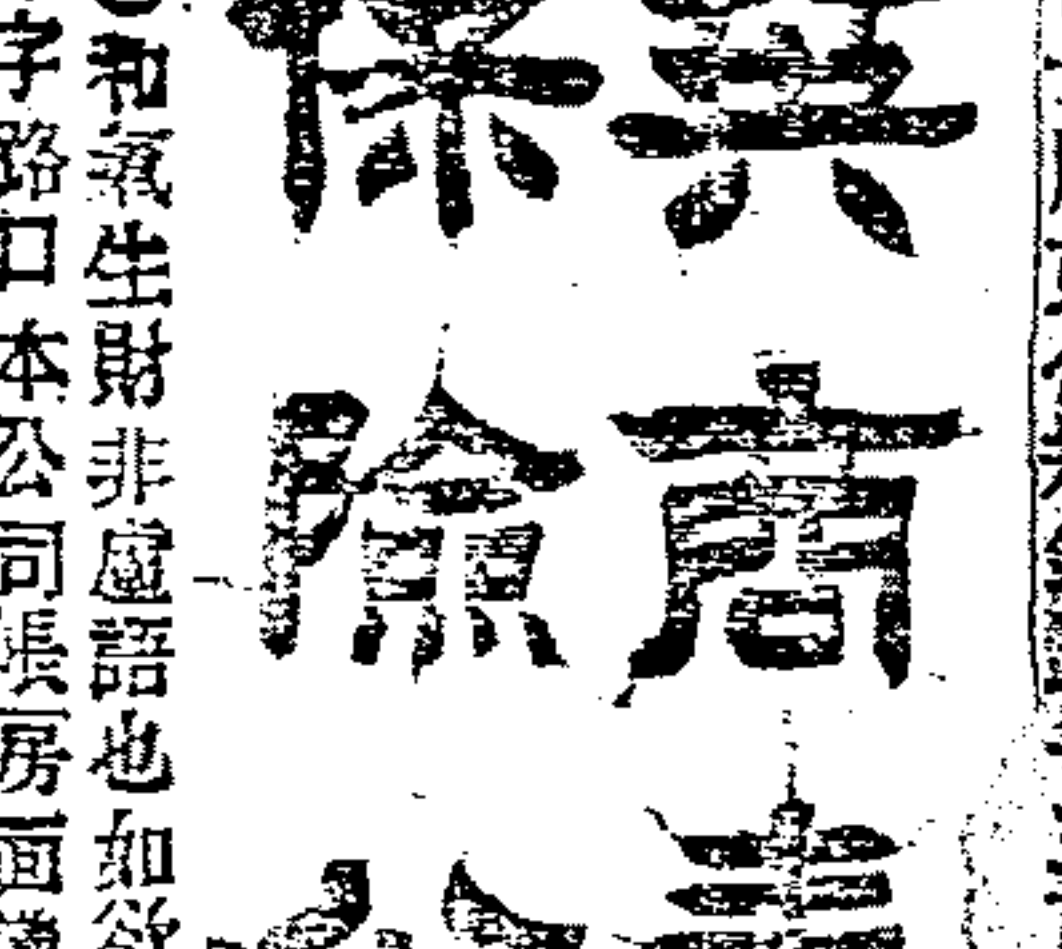 英商
保險公
和氣生財非虛語也如欲
字路口本公司帳房面